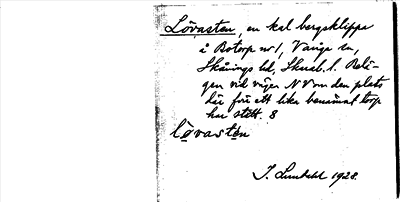 Lövasten, en kal bergsklippa
å Botorp nr 1, Vånga sn,
Skånings hd, Skarab. l. Belä-
gen vid vägen N V om den plats
där förr ett lika benämnt torp
har stått. 8
lövastən
I. Lundahl 1928.